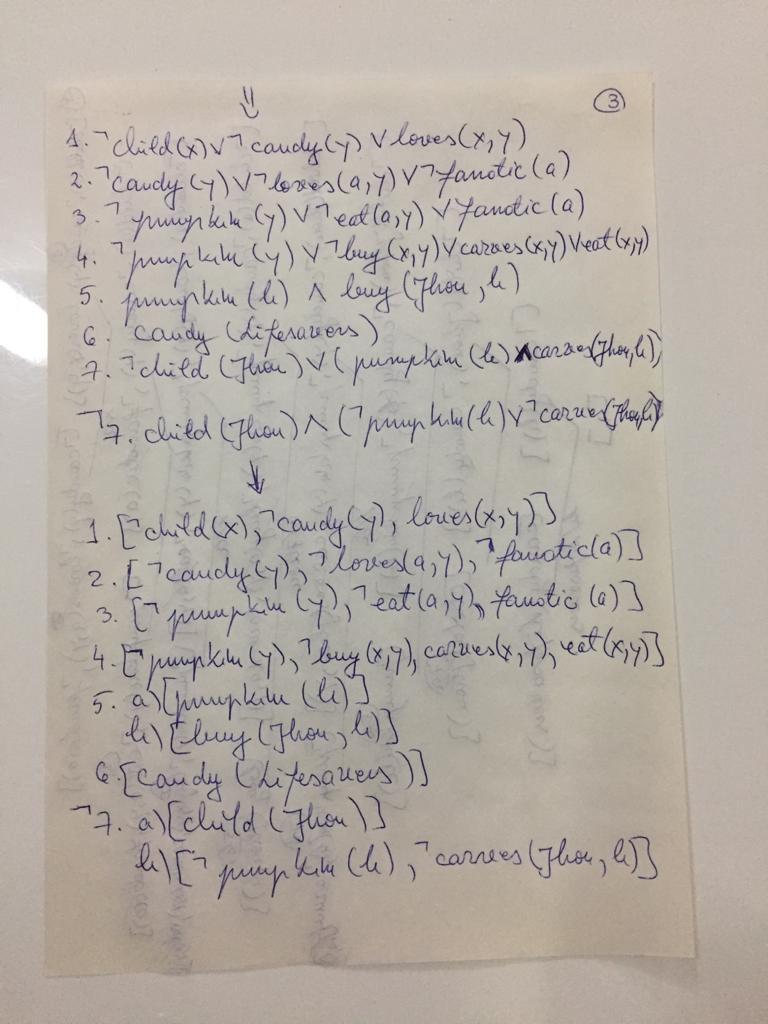 ③
⇓
1. ¬child(x) ∨ ¬candy(y) ∨ loves(x,y)
2. ¬candy(y) ∨ ¬loves(a,y) ∨ ¬fanatic(a)
3. ¬pumpkin(y) ∨ ¬eat(a,y) ∨ fanatic(a)
4. ¬pumpkin(y) ∨ ¬buy(x,y) ∨ carves(x,y) ∨ eat(x,y)
5. pumpkin(b) ∧ buy(Jhon,b)
6. candy(Lifesavers)
7. ¬child(Jhon) ∨ (pumpkin(b) ∧ carves(Jhon,b))
¬7. child(Jhon) ∧ (¬pumpkin(b) ∨ ¬carves(Jhon,b)
⇓
1. [¬child(x), ¬candy(y), loves(x,y)]
2. [¬candy(y), ¬loves(a,y), ¬fanatic(a)]
3. [¬pumpkin(y), ¬eat(a,y), fanatic(a)]
4. [¬pumpkin(y), ¬buy(x,y), carves(x,y), eat(x,y)]
5. a) [pumpkin(b)]
b) [buy(Jhon,b)]
6. [candy(Lifesavers)]
¬7. a) [child(Jhon)]
b) [¬pumpkin(b), ¬carves(Jhon,b)]